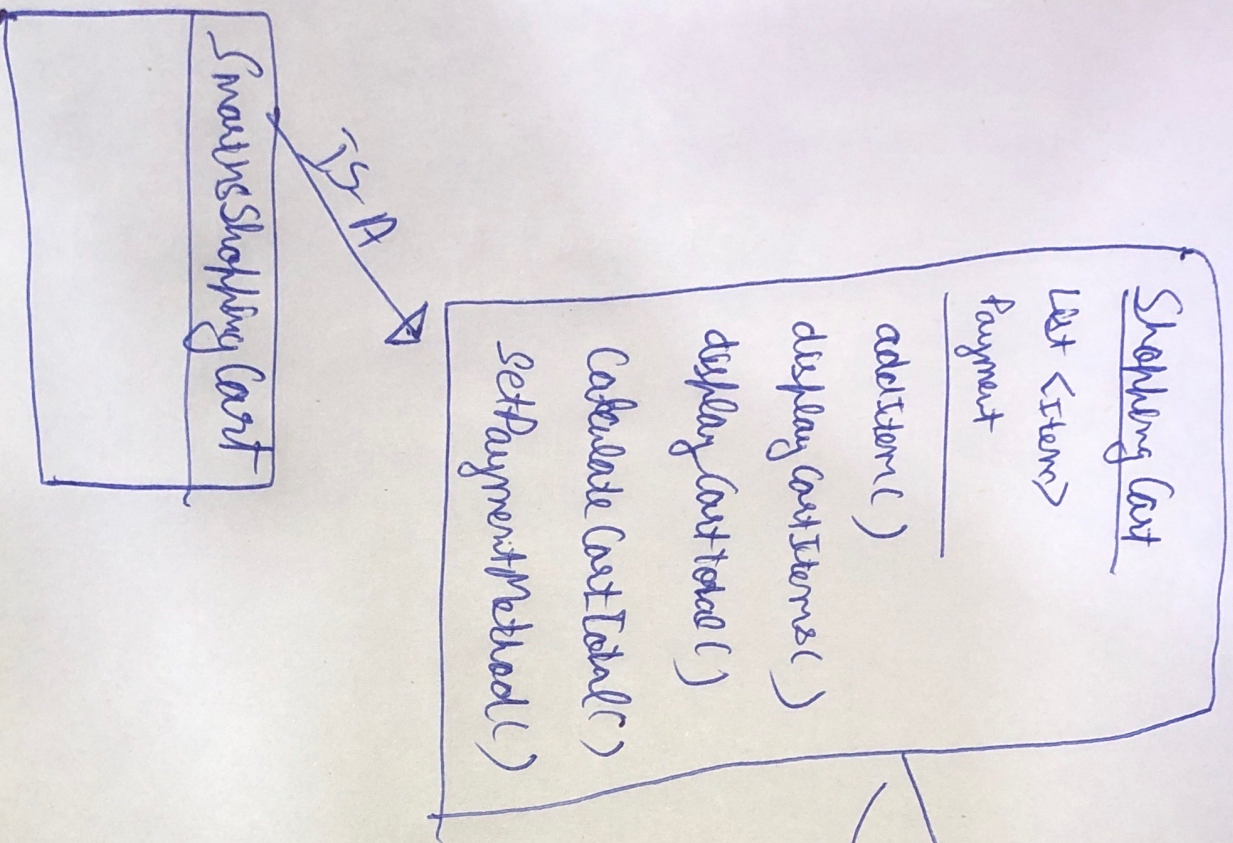 Shopping Cart
List <Item>
Payment
addItem()
displayCartItems()
displayCartTotal()
CalculateCartTotal()
SetPaymentMethod()
Is A
SmartnsShopping Cart